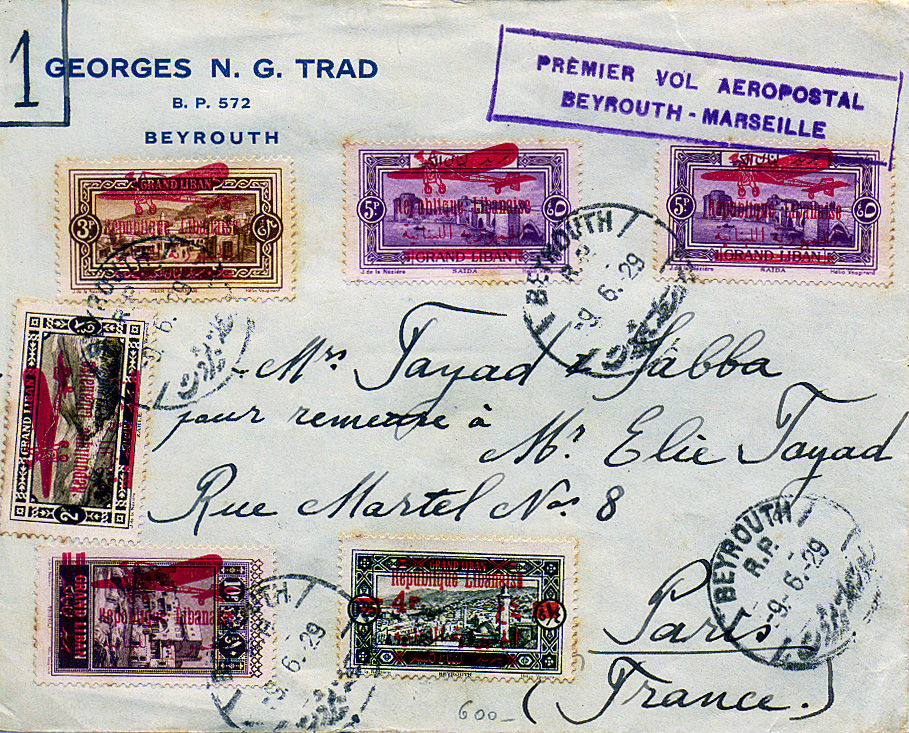 1
GEORGES N. G. TRAD
B. P. 572
BEYROUTH
PREMIER VOL AEROPOSTAL
BEYROUTH - MARSEILLE
GRAND LIBAN
3P
République Libanaise
5P
République Libanaise
GRAND LIBAN
J. de la Nézière SAIDA
5P
République Libanaise
GRAND LIBAN
SAIDA Hélio Vaugirard
BEYROUTH
R.P.
9.6.29
6.29
GRAND LIBAN
République Libanaise
2P
Mrs Tayad & Sabba
pour remettre à
Mr. Elie Tayad
Rue Martel Nos 8
Paris
(France.)
BEYROUTH
R.P.
9-6-29
GRAND LIBAN
République Libana
6.29
République Libanaise
4P
BEYROUTH
600-